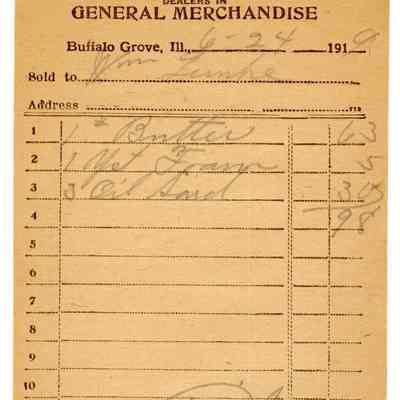 DEALERS IN
GENERAL MERCHANDISE
Buffalo Grove, Ill., 6-24 1919
Sold to Wm
Address
1 1# Butter 63
2 1 Yst Foam 5
3 3 Oil Sard 30
4 98
5
6
7
8
9
10